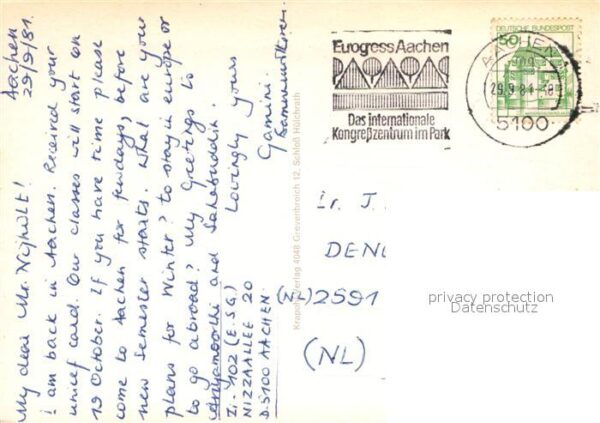 Aachen
29/9/81.
My dear Mr. Nijholt!
I am back in Aachen. Received your
unicef card. Our classes will start on
19 October. If you have time please
come to Aachen for fewdays, before
new Semester starts. What are your
plans for Winter? to stay in europe or
to go abroad? My Greetings to
and Sahabuddin.
Lovingly yours
Gamini.
Zi-102 (E.S.G)
NIZZAALLEE 20
D.5100 AACHEN.
Krapohl-Verlag 4048 Grevenbroich 12, Schloß Hülchrath
Eurogress Aachen
Das internationale
Kongreßzentrum im Park
AACHEN
29.9.81
5100
50
DEUTSCHE BUNDESPOST
Ir. J.
DEN
(NL) 2591
(NL)
privacy protection
Datenschutz